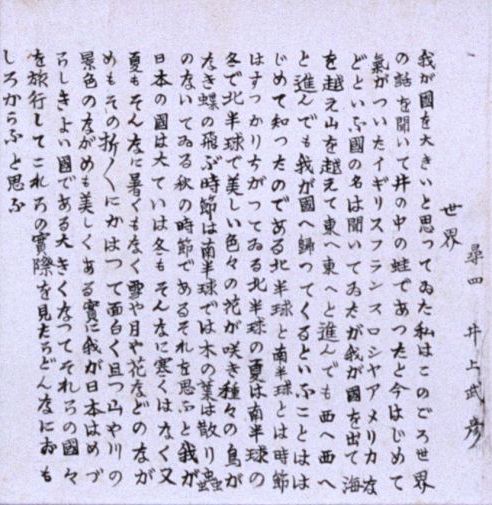 世界
尋四 井上武彦
我が國を大きいと思ってゐた私はこのごろ世界
の話を聞いて井の中の蛙であつたと今はじめて
氣がついたイギリスフランスロシヤアメリカな
どといふ國の名は聞いてゐたが我が國を出て海
を越え山を越えて東へ東へと進んでも西へ西へ
と進んでも我が國へ歸つてくるといふことはは
じめて知つたのである北半球と南半球とは時節
はすつかりちがつてゐる北半球の夏は南半球の
冬で北半球で美しい色々の花が咲き種々の鳥が
なき蝶の飛ぶ時節は南半球では木の葉は散り蟲
のないてゐる秋の時節であるそれを思ふと我が
日本の國は大ていは冬もそんなに寒くはなく又
夏もそんなに暑くもなく雪や月や花などのなが
めもその折〳〵にかはつて面白く且つ山や川の
景色のながめも美しくある實に我が日本はめづ
らしきよい國である大きくなつてそれらの國々
を旅行してこれらの實際を見たらどんなにおも
しろからふと思ふ